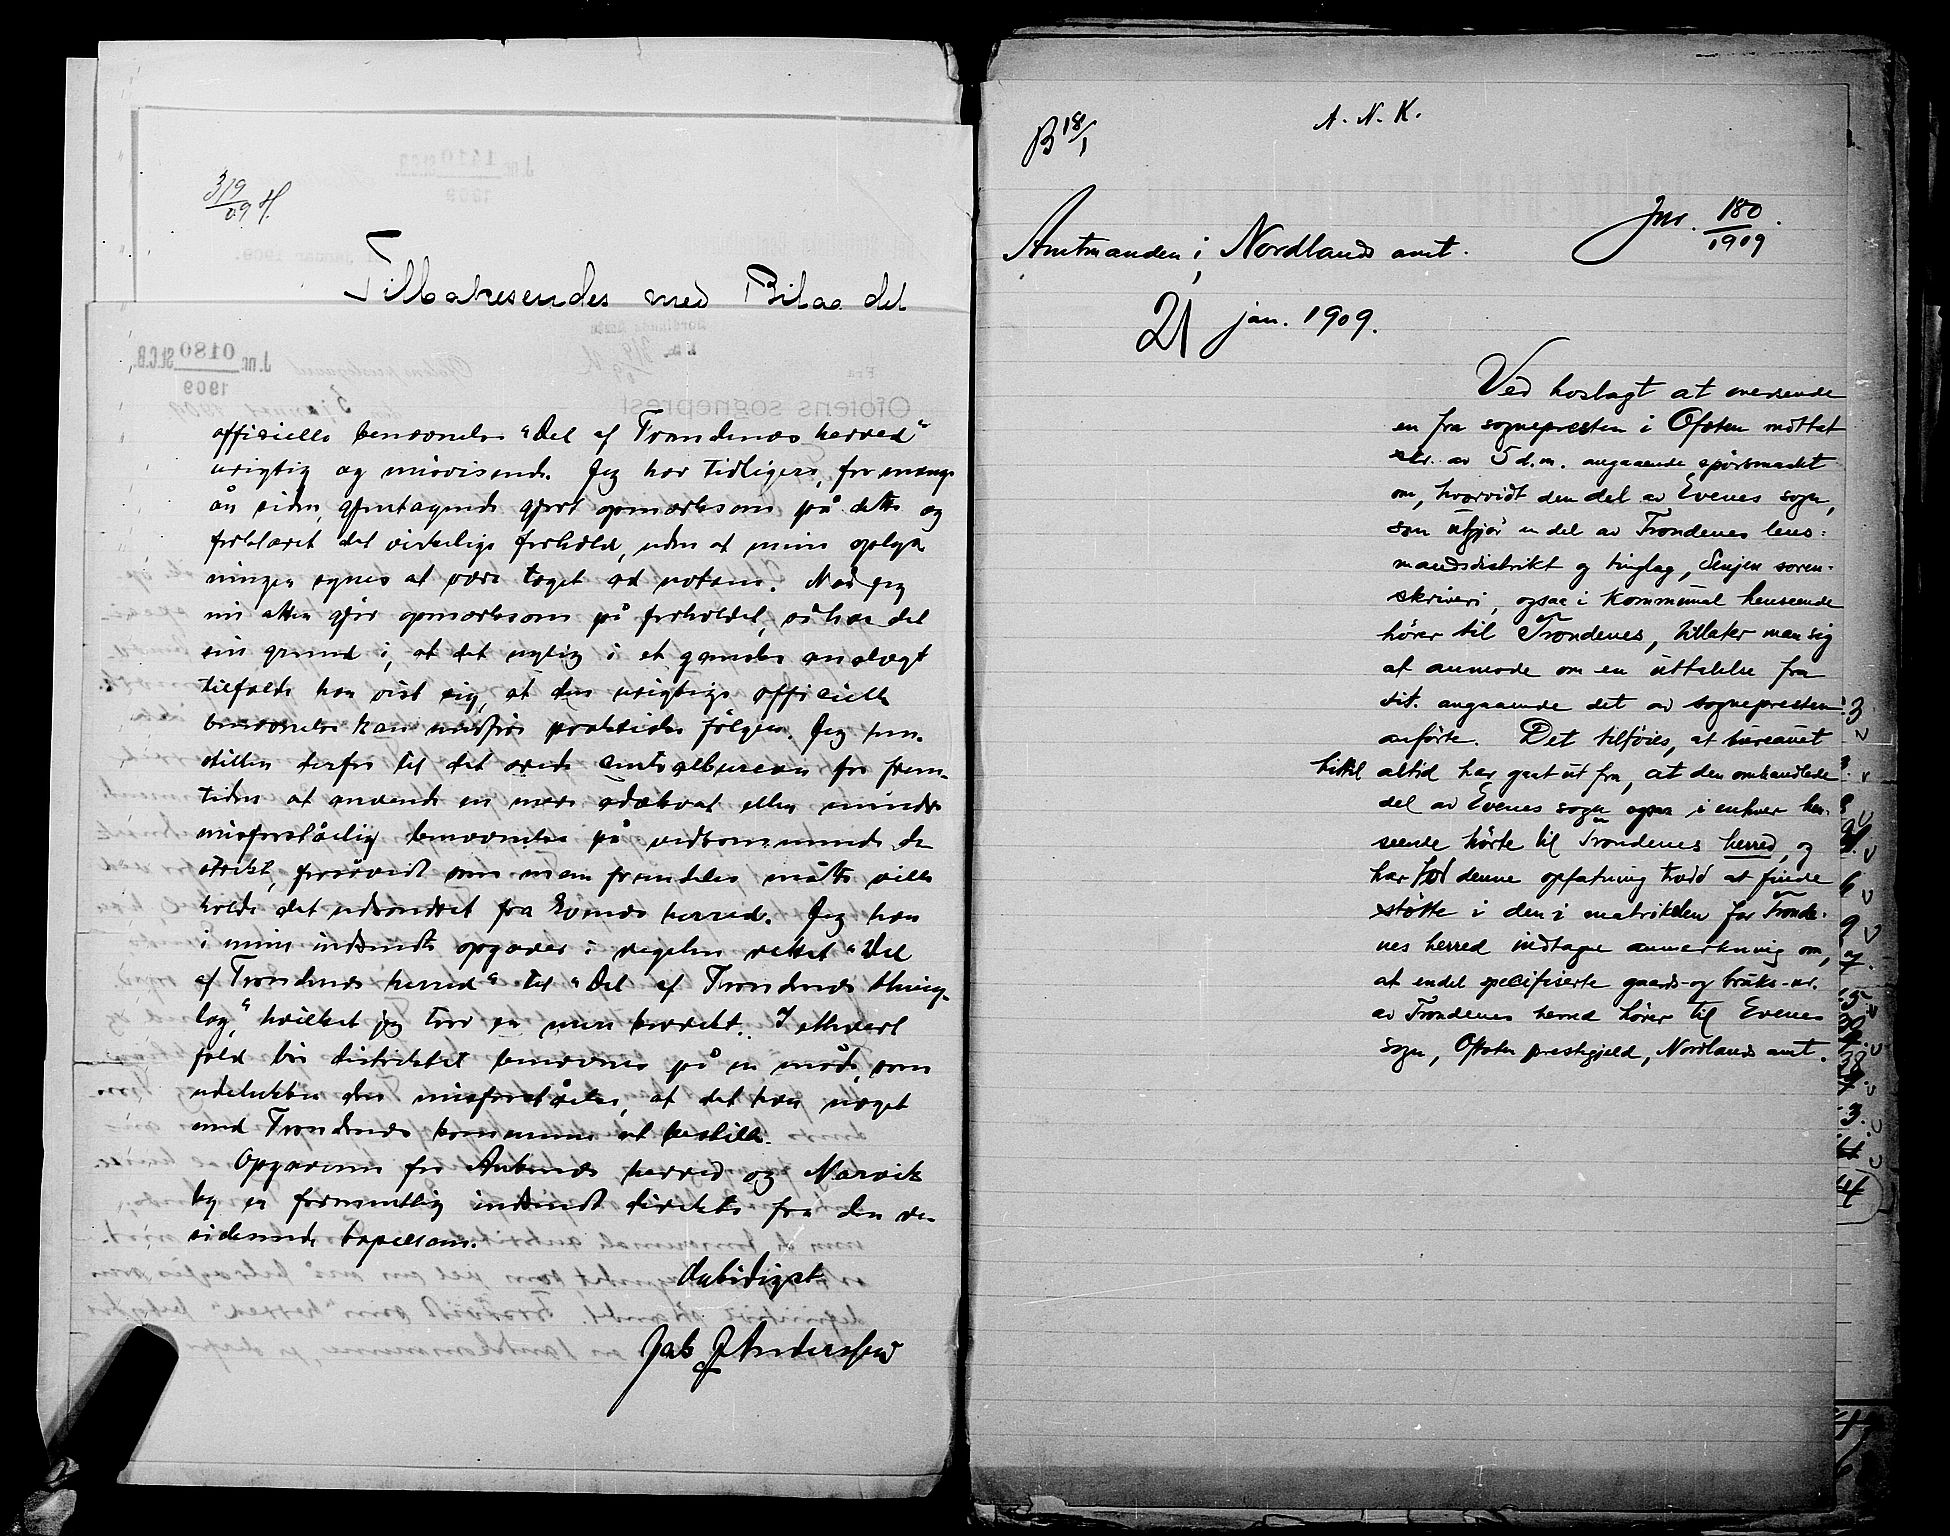 319/09 H.
Tilbakesendes med Bilag det
J.nr. 0180 St.C.B.
1909
Ofotens sogneprest
officielle benævnelse "Del af Trondenæs herred"
urigtig og misvisende. Jeg har tidligere, for mange
år siden, gjentagende gjort opmærksom på dette og
forklaret det virkelige forhold, uden at mine oplys-
ninger synes at være taget ad notam. Når jeg
nu atter gjør opmærksom på forholdet, så har det
sin grund i, at det nylig i et ganske analogt
tilfælde har vist sig, at den urigtige officielle
benævnelse kan medføre praktiske følger. Jeg hen-
stiller derfor til det ærede centralbureau for frem-
tiden at anvende en mere adækvat eller mindre
misforståelig benævnelse på vedkommende di-
strikt, forsåvidt som man fremdeles måtte ville
holde det udsondret fra Evenæs herred. Jeg har
i mine indsendte opgaver i regelen rettet "Del
af Trondenæs herred" til "Del af Trondenæs thing-
lag," hvilket jeg tror er mere korrekt. I ethvert
fald bør distriktet benævnes på en måde, som
udelukker den misforståelse, at det har noget
med Trondenæs kommune at bestille.
Opgaverne for Ankenæs herred og Narvik
by er formentlig indsendt direkte fra den re-
siderende kapellan.
Ærbødigst
Jak J Anderssen
B 18/1
A. N. K.
Jnr. 180/1909.
Amtmanden i Nordlands amt.
21 jan. 1909.
Ved hoslagt at oversende
en fra sognepresten i Ofoten mottat
skr. av 5 d.m. angaaende spörsmaalet
om, hvorvidt den del av Evenes sogn,
som utgjör en del av Trondenes lens-
mandsdistrikt og tinglag, Senjen soren-
skriveri, ogsaa i kommunal henseende
hörer til Trondenes, tillater man sig
at anmode om en uttalelse fra
dit. angaaende det av sognepresten
anförte. Det tilföies, at bureauet
hittil altid har gaat ut fra, at den omhandlede
del av Evenes sogn ogsaa i enhver hen-
seende hörte til Trondenes herred, og
har for denne opfatning trodd at finde
stötte i den i matrikelen for Tronde-
nes herred indtagne anmerkning om,
at endel specifiserte gaards- og bruks-nr.
av Trondenes herred hörer til Evenes
sogn, Ofoten prestegjeld, Nordlands amt.